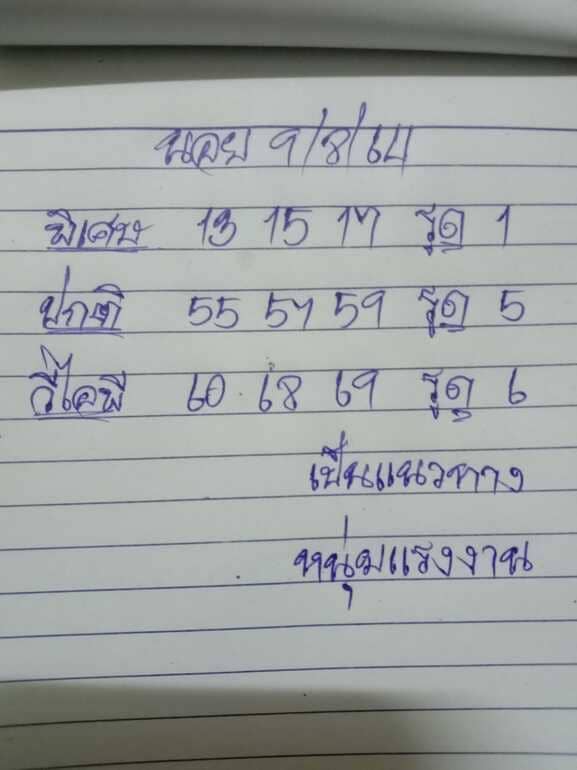 นอย 9/8/64
พิเศษ 13 15 17 รูด 1
ปกติ 55 57 59 รูด 5
วีไอพี 60 68 69 รูด 6
เป็นแนวทาง
หนุ่มแรงงาน